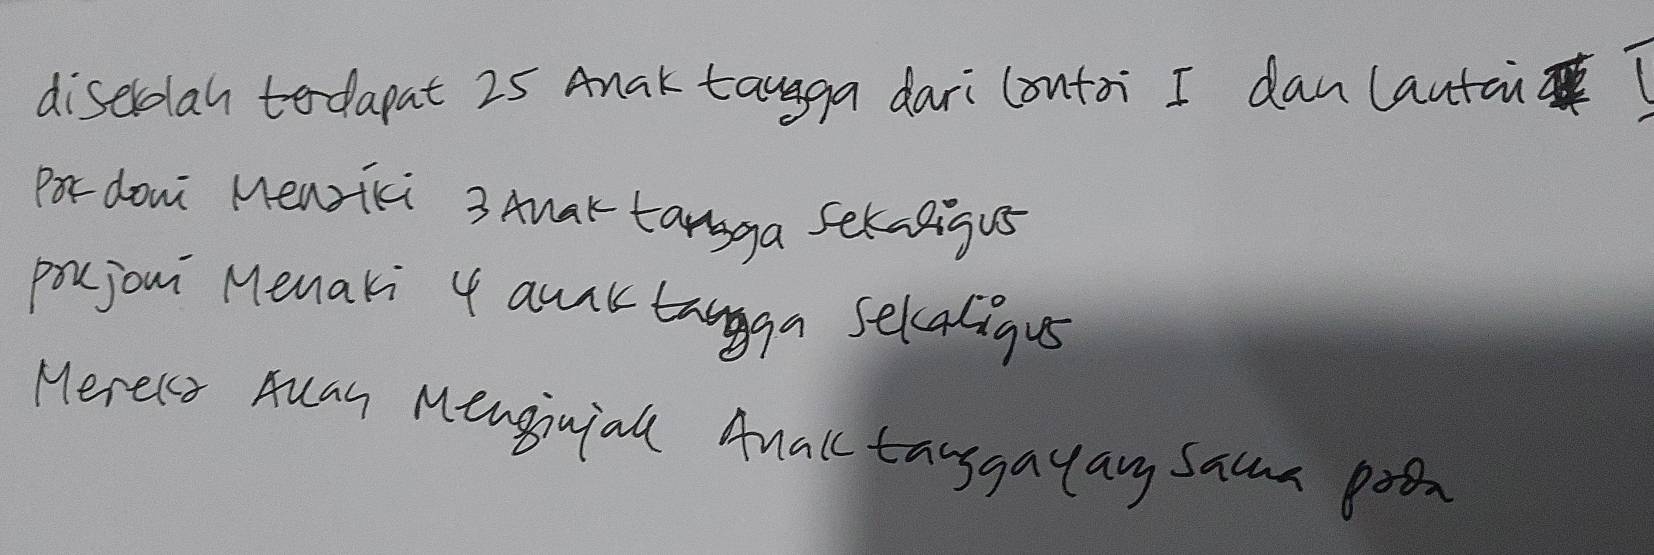 disekolah terdapat 25 Anak tangga dari lantai I dan lantai
Pak doni Menaiki 3 Anak tangga sekaligus
pak joni Menaki 4 anak tangga sekaligus
Mereka Akan Menginjak Anak tangga yang sama pada